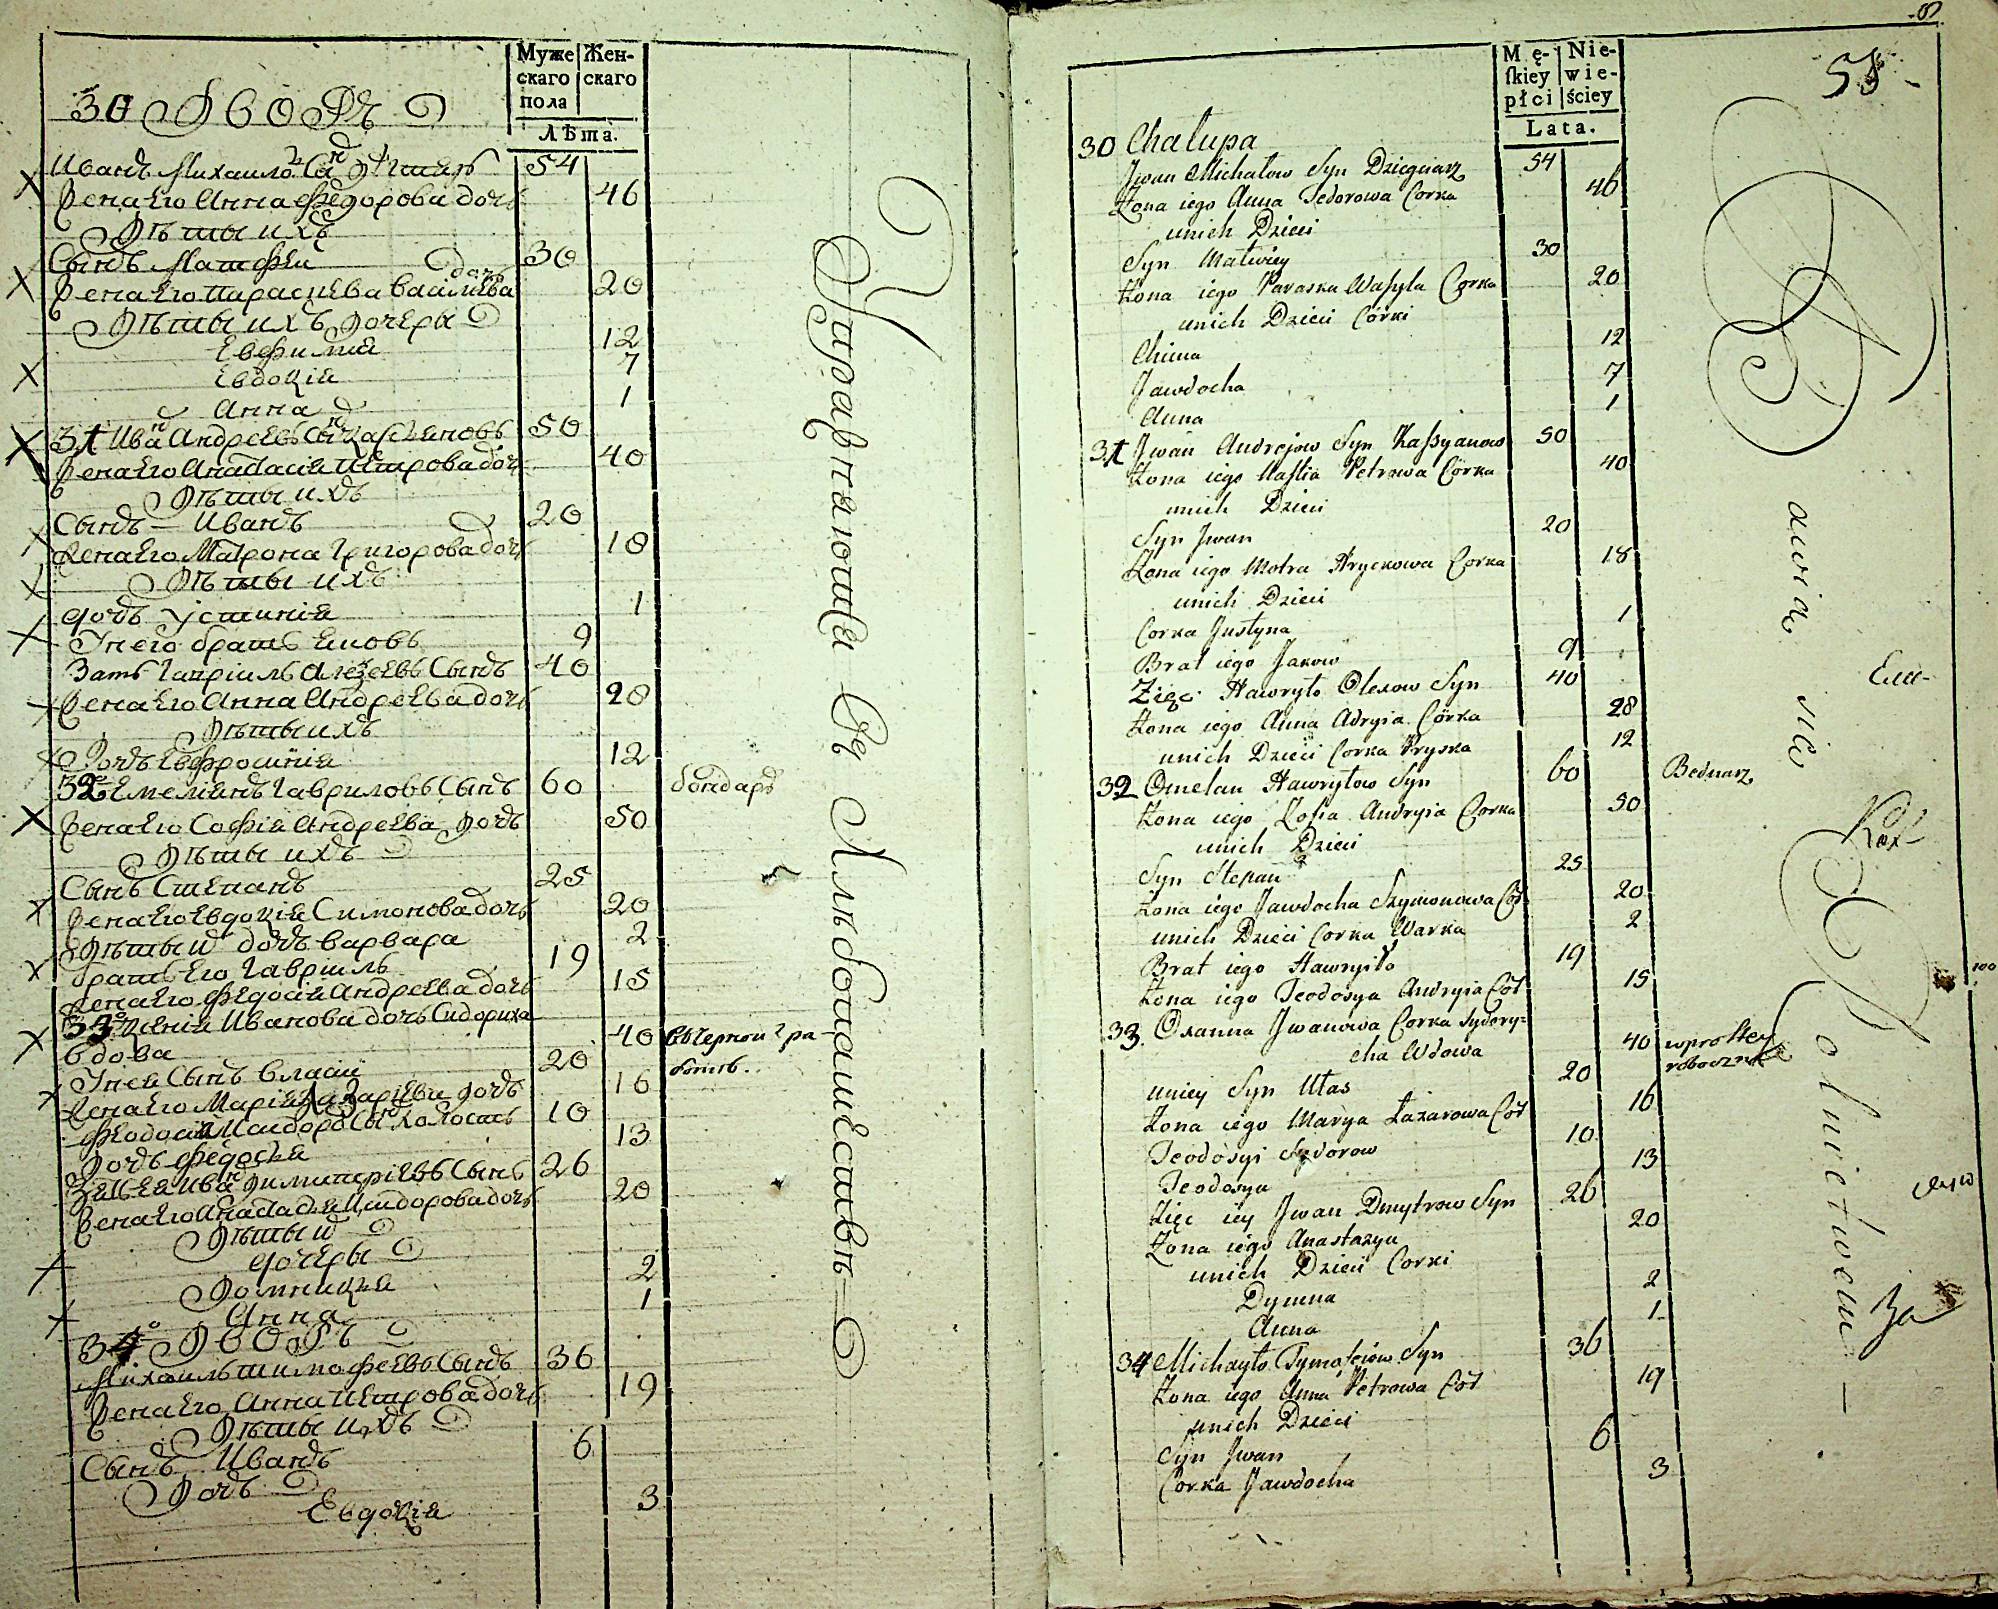 Муже
скаго
пола
Жен-
скаго
Лѣта.
30 Дворъ
Иванъ Михаиловъ Сынъ 54
Жена Его Анна Федорова дочь 46
Дѣти ихъ
Сынъ Матфей 30
Жена Его Параскева Васильева дочь 20
Дѣти ихъ дочери
Евфимія 12
Евдокія 7
Анна 1
31 Иванъ Андреевъ Сынъ Касьяновъ 50
Жена Его Анастасія Петрова дочь 40
Дѣти ихъ
Сынъ Иванъ 20
Жена Его Матрона Григорова дочь 18
Дѣти ихъ
дочь Устинія 1
У него братъ Яковъ 9
Зять Гавріилъ Алексеевъ Сынъ 40
Жена Его Анна Андреева дочь 28
Дѣти ихъ
Дочь Евфросинія 12
32 Емеліянъ Гавриловъ Сынъ 60 бондарь
Жена Его Софія Андреева дочь 50
Дѣти ихъ
Сынъ Степанъ 25
Жена Его Евдокія Симонова дочь 20
Дѣти ихъ дочь Варвара 2
братъ Его Гавріилъ 19
Жена Его Федосія Андреева дочь 15
33 Ксенія Иванова дочь Сидориха 40 в черной ра-
вдова ботѣ.
У ней Сынъ Власій 20
Жена Его Марія Лазарева дочь 16
Феодосій Исидоровъ Сынъ холостъ 10
Дочь Федосья 13
Зять Ея Иванъ Димитріевъ Сынъ 26
Жена Его Анастасія Исидорова дочь 20
Дѣти ихъ
дочери
Домникія 2
Анна 1
34 Дворъ
Михаилъ Тимофеевъ Сынъ 36
Жена Его Анна Петрова дочь 19
Дѣти ихъ
Сынъ Иванъ 6
Дочь
Евдокія 3
Упражняются Въ Хлѣбопашествѣ
Mę-
ſkiey
płci
Nie-
wie-
ściey
Lata.
58
30 Chalupa
Jwan Michałow Syn Dziegciarz 54
Żona iego Anna Fedorowa Corka 46
unich Dzieci
Syn Matwiey 30
Żona iego Paraska Wasyla Corka 20
unich Dzieci Córki
Chima 12
Jawdocha 7
Anna 1
31 Jwan Andrejow Syn Kassyanow 50
Żona iego Nastia Petrowa Córka 40
unich Dzieci
Syn Jwan 20
Żona iego Motra Hryckowa Corka 18
unich Dzieci
Corka Justyna 1
Brat iego Jakow 9
Zięć Hawryło Olexow Syn 40
Żona iego Anna Adryia Córka 28
unich Dzieci Corka Pryska 12
32 Omelan Hawryłow Syn 60 Bednarz
Żona iego Zofia Andryia Corka 50
unich Dzieci
Syn Stepan 25
Żona iego Jawdocha Szymonowa Cór 20
unich Dzieci Corka Warka 2
Brat iego Hawryiło 19
Żona iego Teodosya Andryia Cór 15
33 Oxanna Jwanowa Corka Sydory- 40 w prostey
cha Wdowa roboczne
uniey Syn Ułas 20
Żona iego Marya Łazarowa Cór 16
Teodosyi Sydorow 10
Teodosya 13
Zięć iey Jwan Dmytrow Syn 26
Żona iego Anastazya 20
unich Dzieci Corki
Dymna 2
Anna 1
34 Michayło Tymofeiow Syn 36
Żona iego Anna Petrowa Cór 19
unich Dzieci
Syn Jwan 6
Corka Jawdocha 3
Bawią się Rolnictwem
За